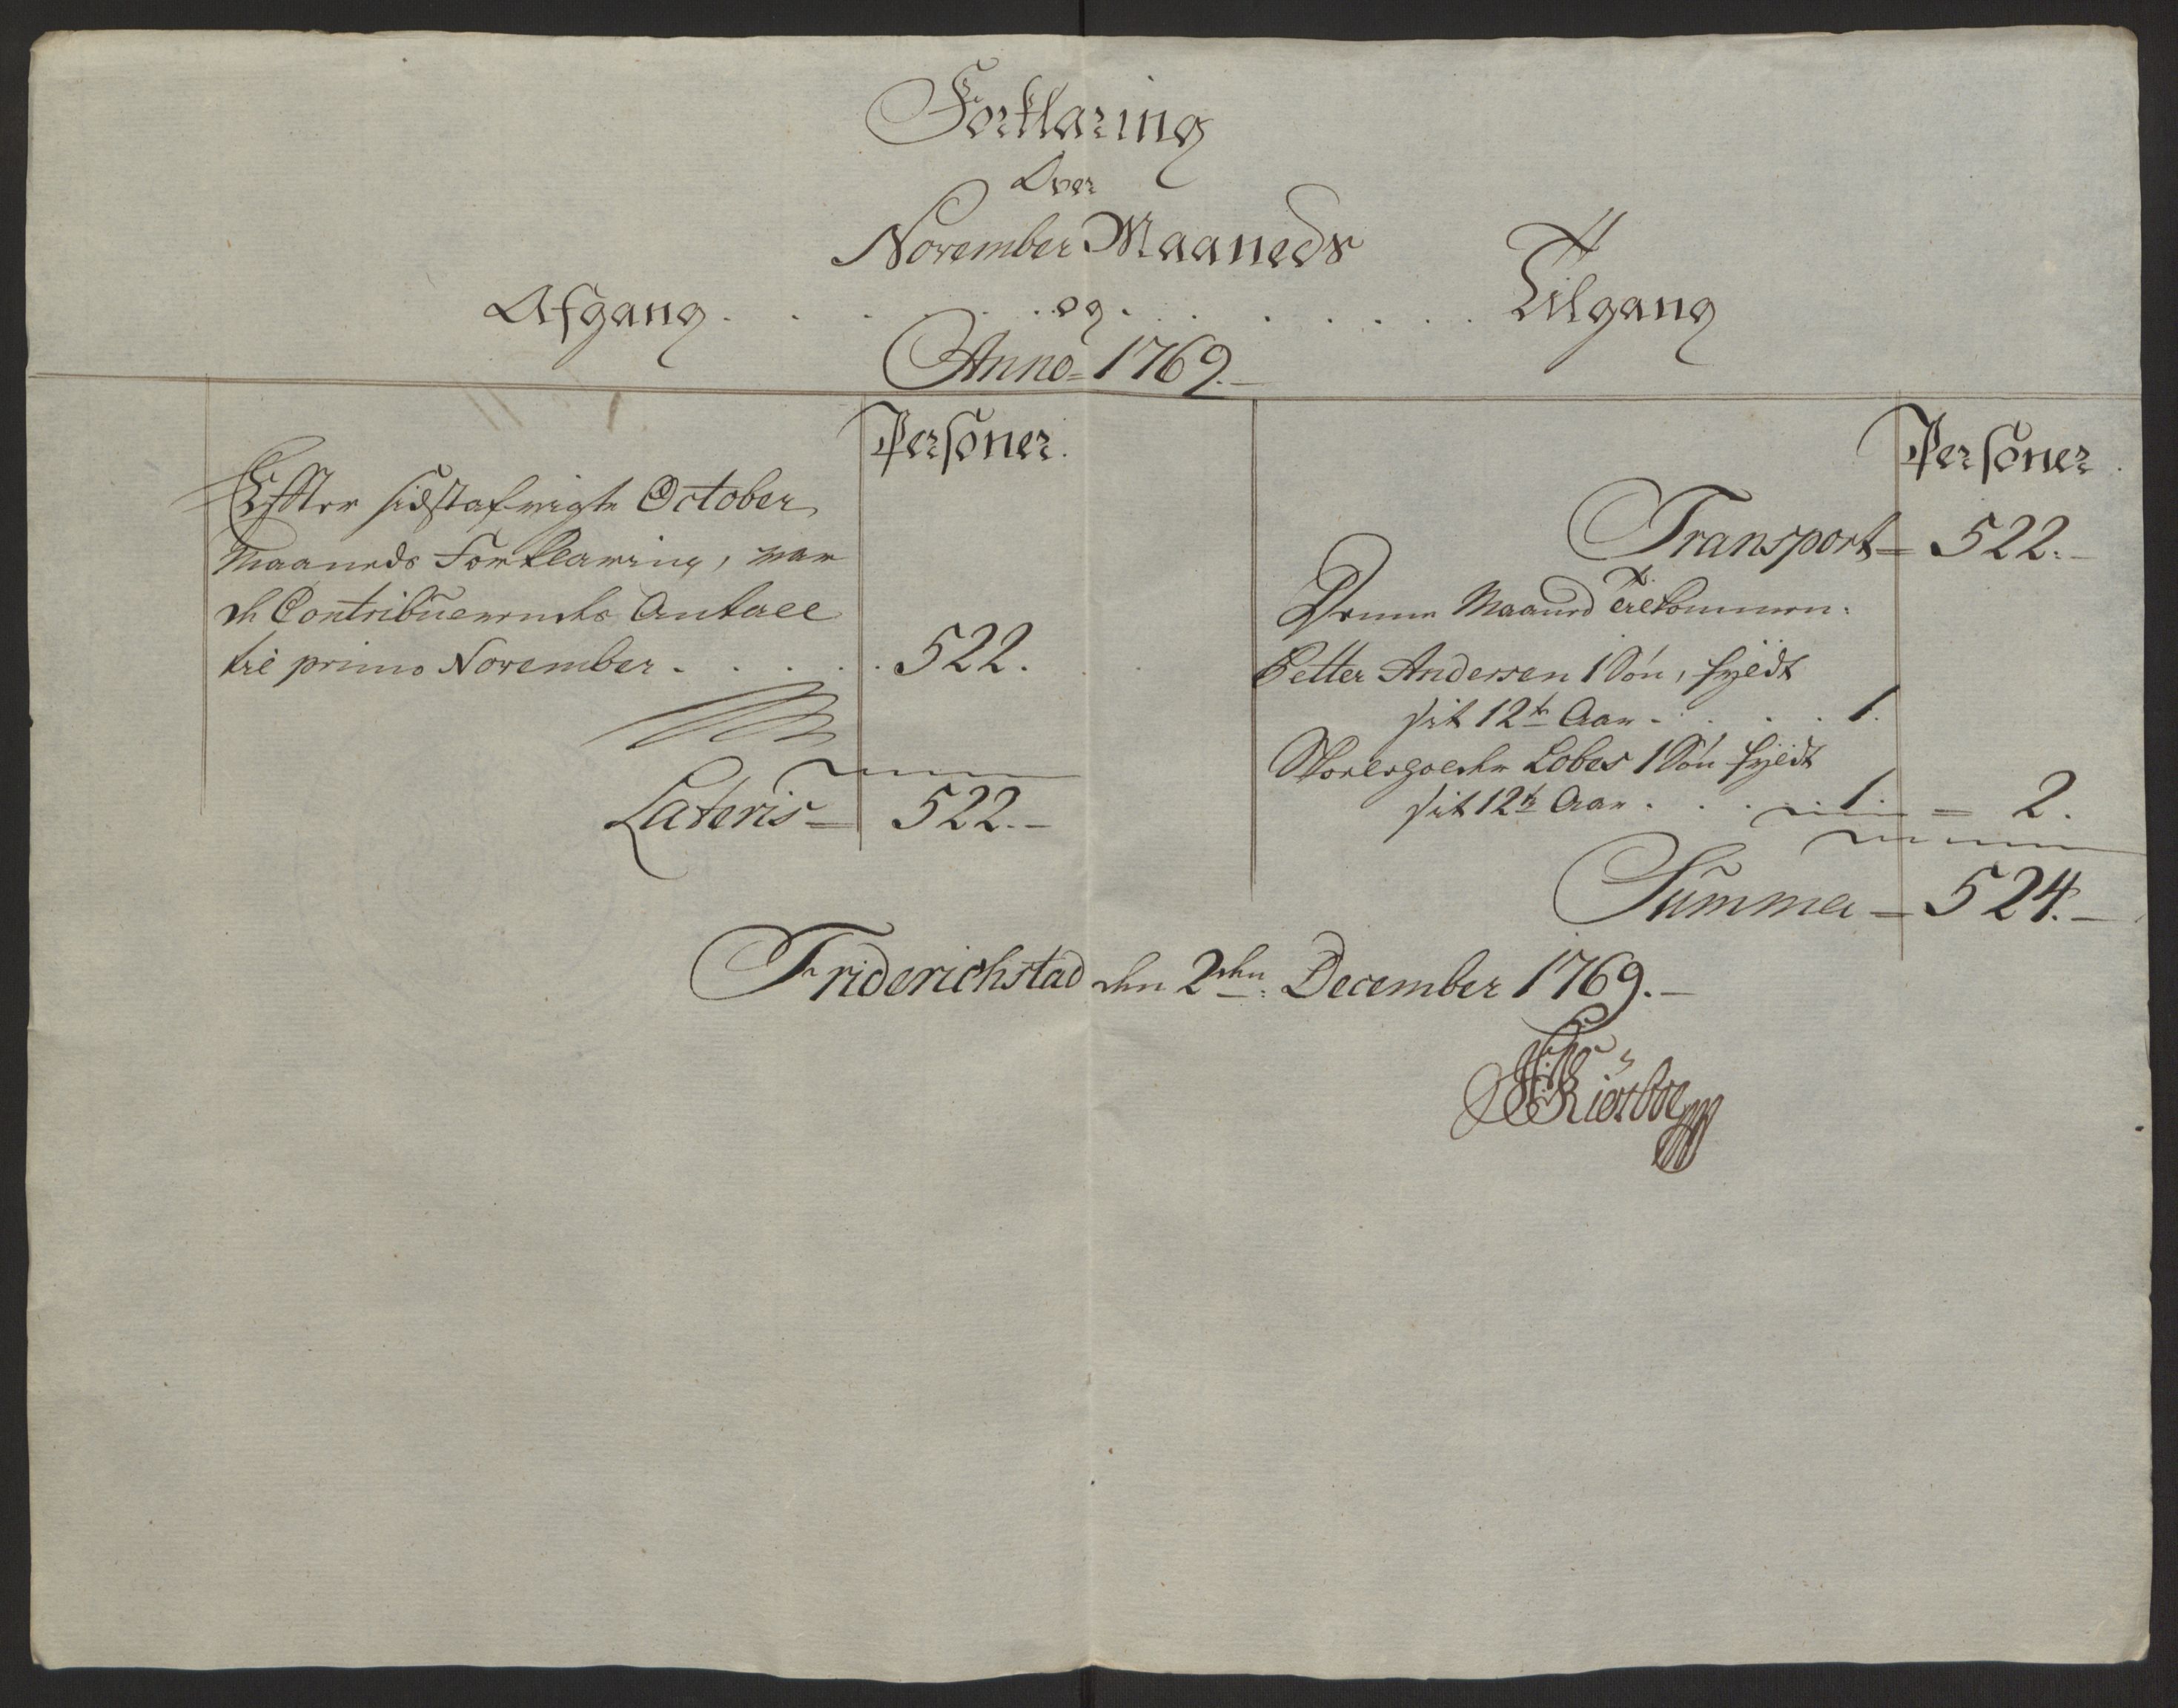 Forklaring
Over
November Maaneds
Afgang . . . . . . og . . . . . . Tilgang
Anno = 1769. –
Personer.
Effter sidstafvigte October
Maaneds Forklaring, var
de Contribuerendes Antall
til primo November . . . . . 522.
Lateris = 522. –
Personer.
Transport = 522. –
Denne Maaned Tilkommen:
Petter Andersen 1 Søn, fyldt
sit 12te Aar . . . . 1.
Lobes 1 Søn fyldt
sit 12te Aar . . . . 1. = 2.
Summa = 524. –
Friderichstad den 2den December 1769. –